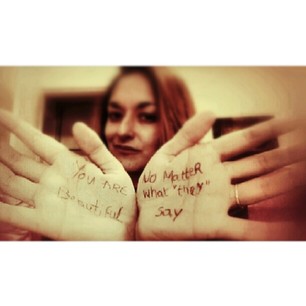 You ARE
Beautiful
No MATTER
what "they"
say